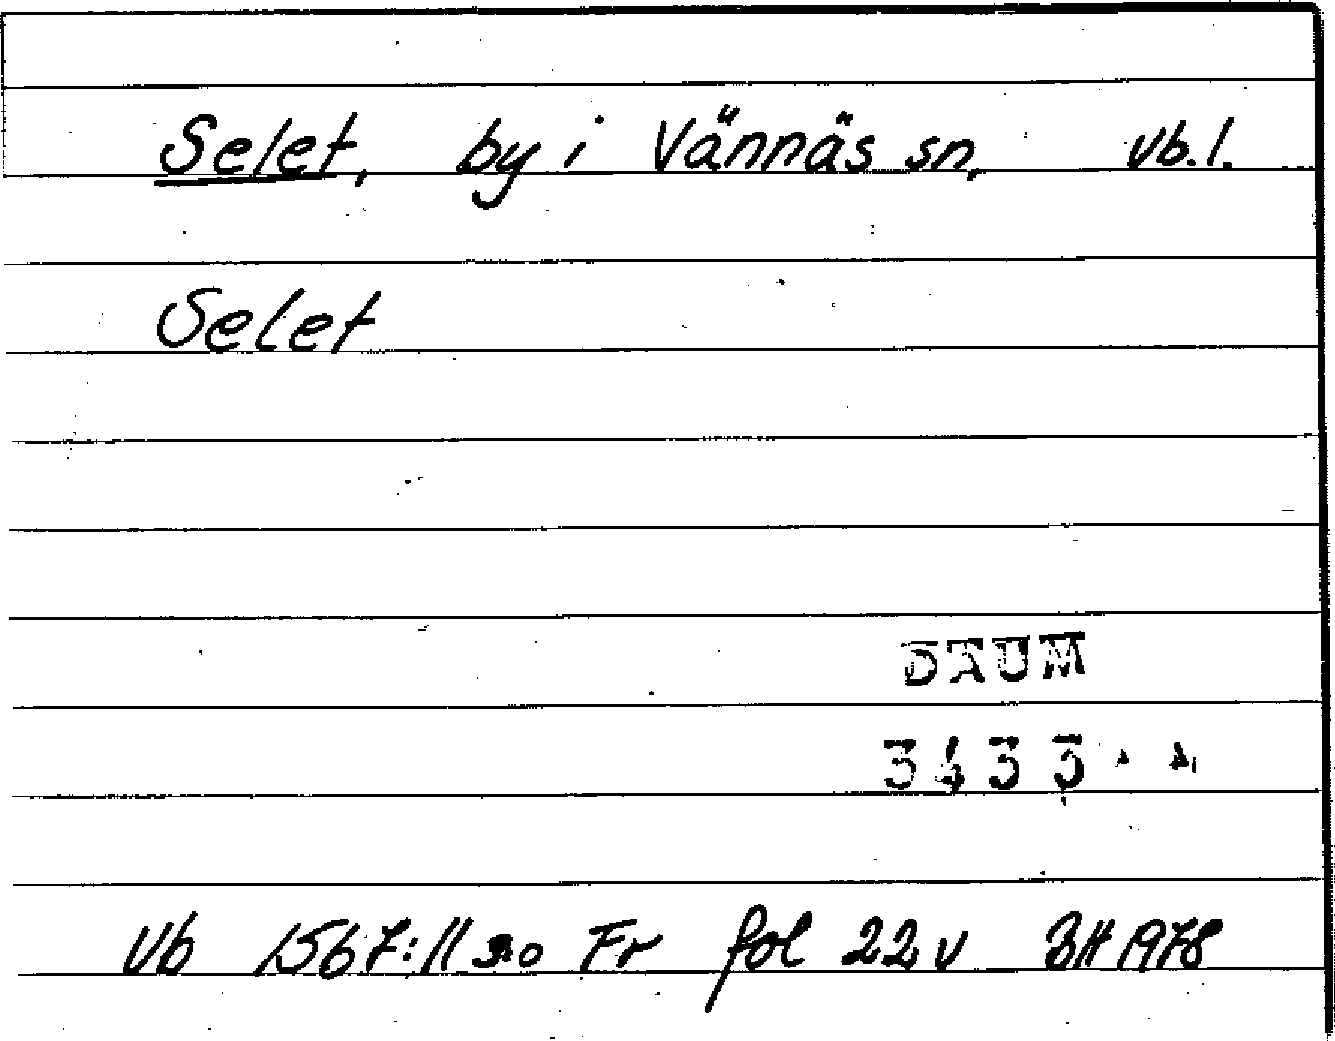 Selet, by i Vännäs sn, Vb.l.
Selet
DAUM
3433
Vb 1567:11 Fr fol 22 v BH 1978